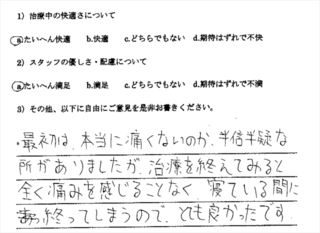 1) 治療中の快適さについて
a.たいへん快適 b.快適 c.どちらでもない d.期待はずれで不快
2) スタッフの優しさ・配慮について
a.たいへん満足 b.満足 c.どちらでもない d.期待はずれで不満
3) その他、以下に自由にご意見を是非お書きください。
・最初は、本当に痛くないのか、半信半疑な
所がありましたが、治療を終えてみると
全く痛みを感じることなく、寝ている間に
終ってしまうので、とても良かったです。